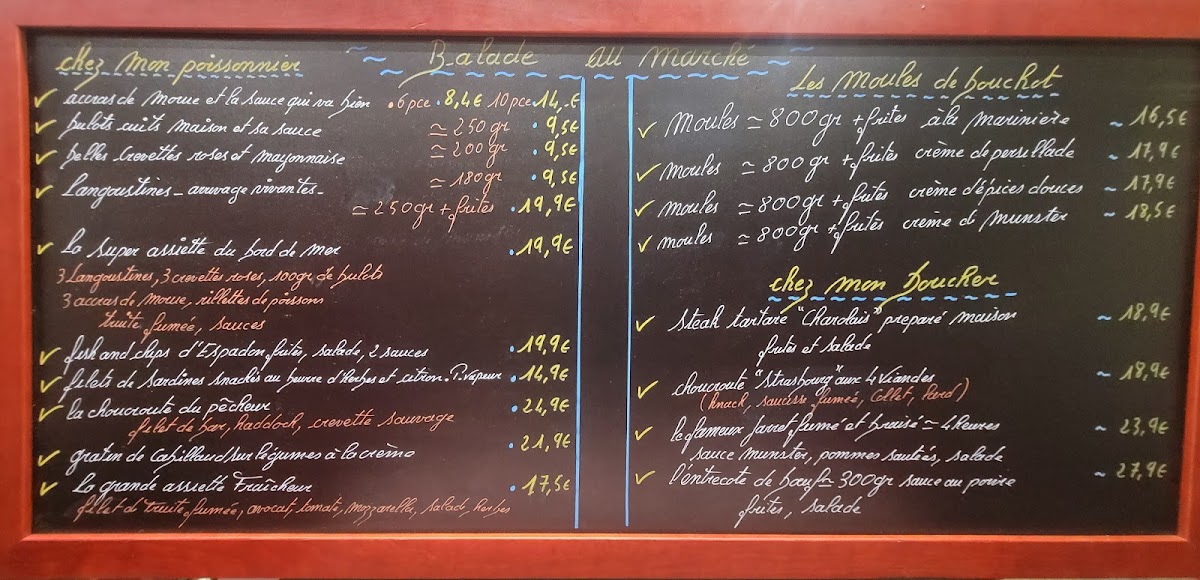 Balade au Marché
chez mon poissonnier
accras de Morue et la sauce qui va bien .6pce .8,4€ 10pce .14,.€
bulots cuits maison et sa sauce ≃ 250gr .9,5€
belles Crevettes roses et mayonnaise ≃ 200gr .9,5€
Langoustines _ arrivage vivantes_ ≃ 180gr .9,5€
≃ 250gr + frites .19,9€
La super assiette du bord de mer .19,9€
3 Langoustines, 3 crevettes roses, 100gr de bulots
3 accras de morue, rillettes de poissons
truite fumée, sauces
fish and chips d'Espadon, frites, salade, 2 sauces .19,9€
filets de sardines snackés au beurre d'herbes et citron. P. vapeur .14,9€
la choucroute du pêcheur .24,9€
filet de bar, haddock, crevette sauvage
gratin de Cabillaud sur légumes à la crème .21,9€
La grande assiette Fraîcheur .17,5€
filet de truite fumée, avocat, tomate, mozzarella, salade, herbes
Les Moules de bouchot
Moules ≃ 800gr + frites à la marinière ~ 16,5€
moules ≃ 800gr + frites crème de persillade ~ 17,9€
moules ≃ 800gr + frites crème d'épices douces ~ 17,9€
moules ≃ 800gr + frites crème de munster ~ 18,5€
chez mon boucher
steak tartare "Charolais" preparé maison ~ 18,9€
frites et salade
choucroute "Strasbourg" aux 4 Viandes ~ 18,9€
(knack, saucisse fumée, Collet, lard)
le fameux Jarret fumé et braisé ≃ 4 heures ~ 23,9€
sauce munster, pommes sautées, salade
l'entrecote de bœuf ≃ 300gr sauce au poivre ~ 27,9€
frites, salade